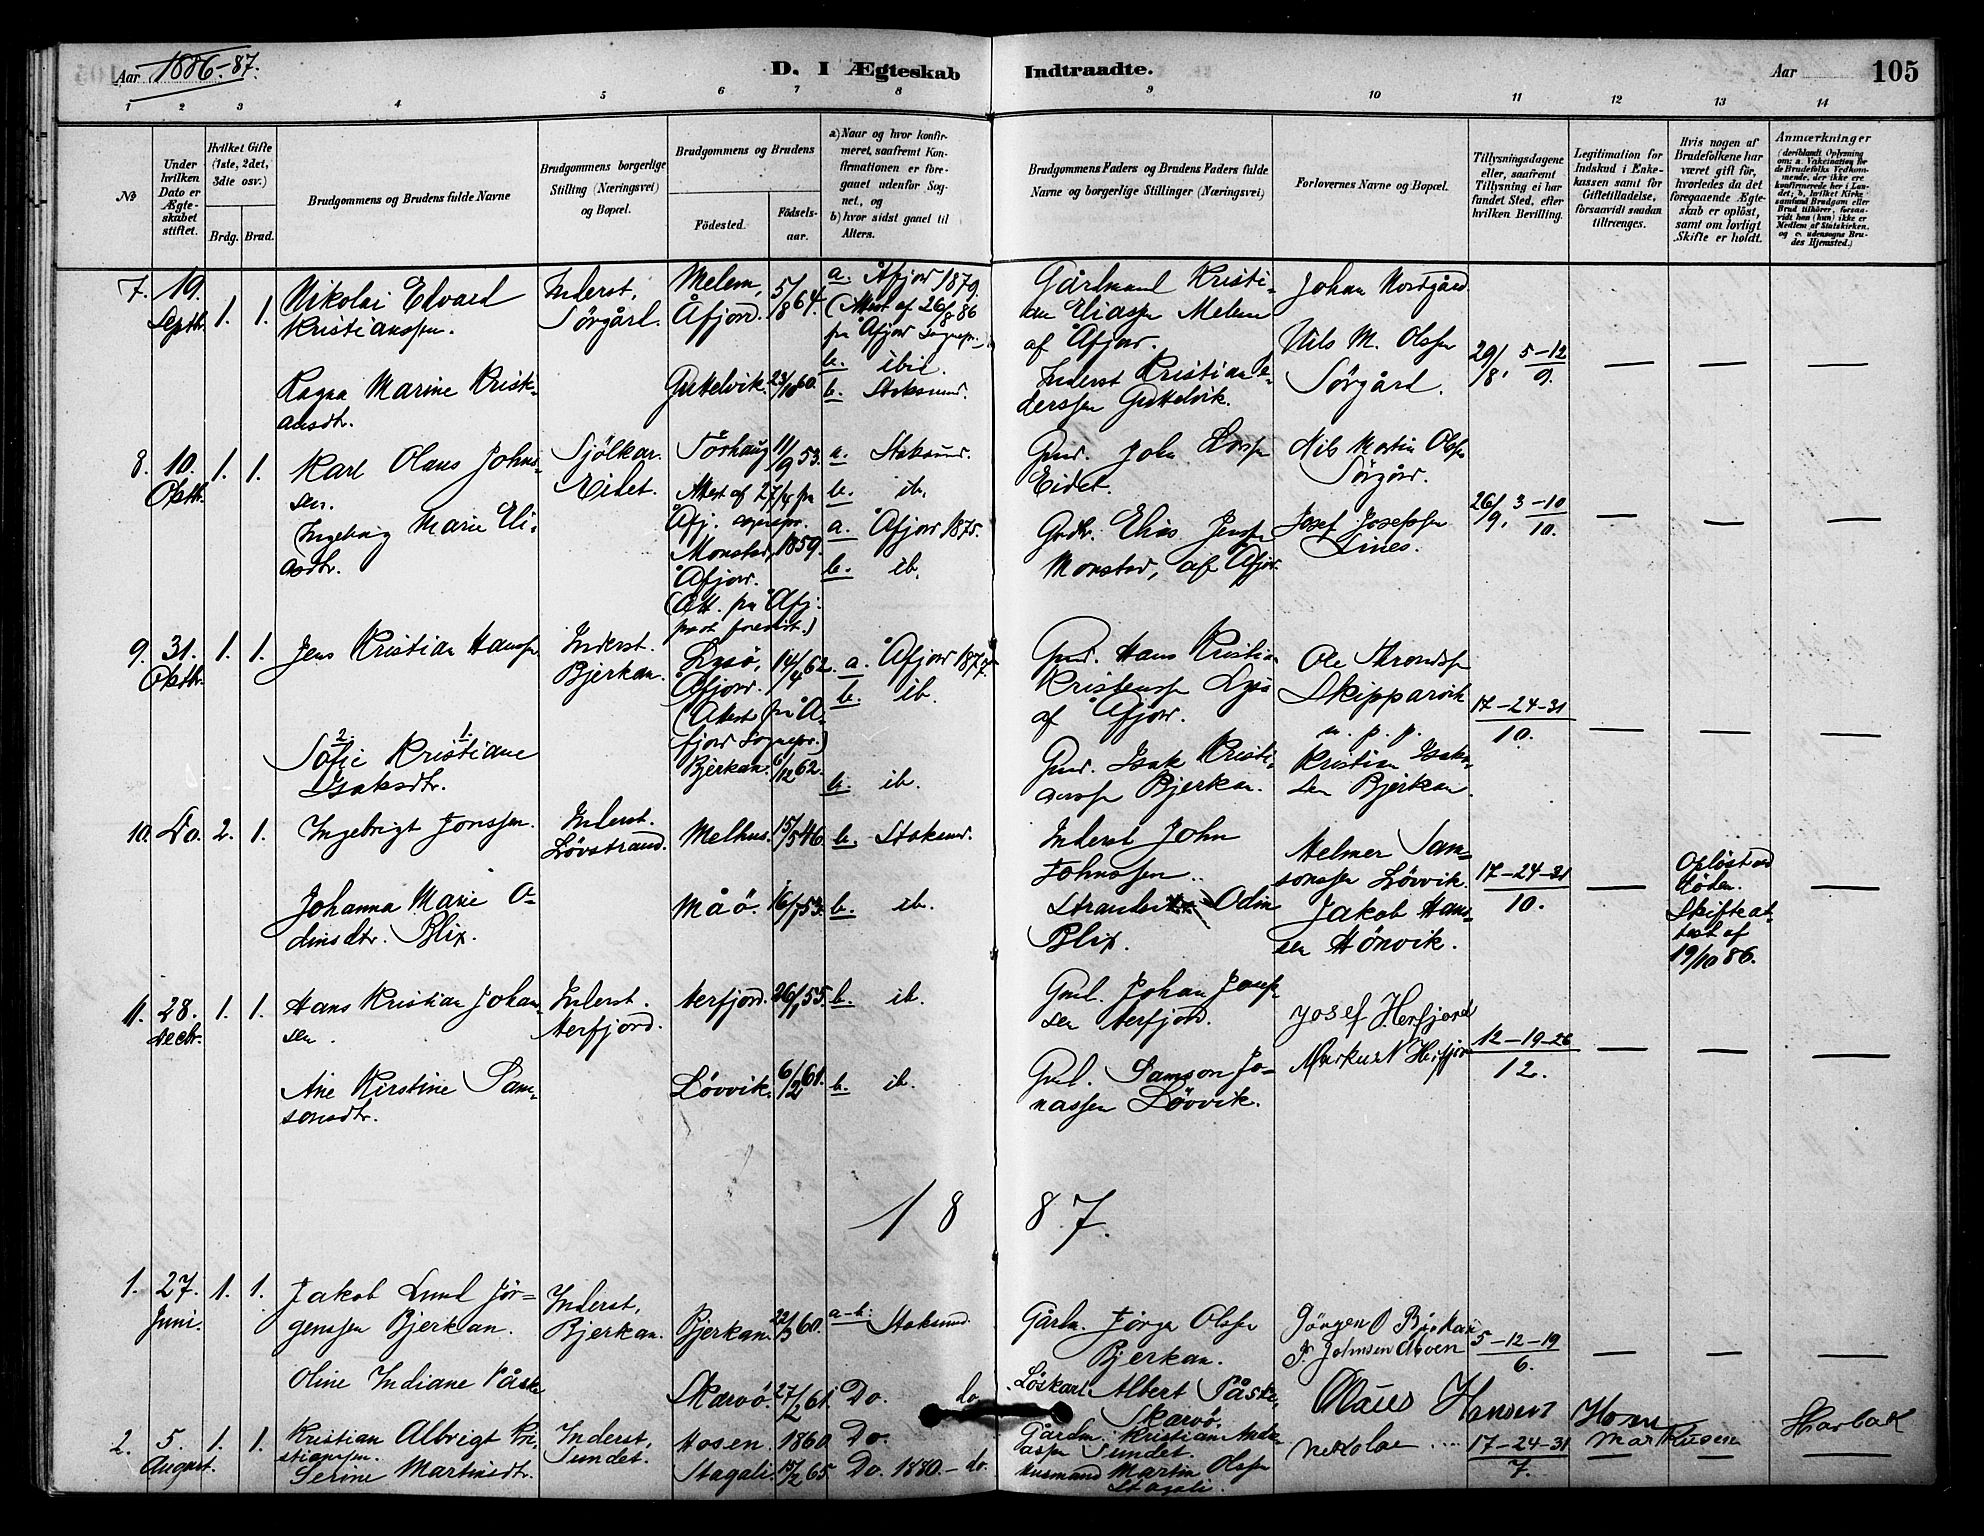 Aar 1886-87.
D. I Ægteskab Indtraadte.
Aar 105
1 2 3 4 5 6 7 8 9 10 11 12 13 14
№
Under hvilken Dato er Ægteskabet stiftet.
Hvilket Gifte (1ste, 2det, 3die osv.)
Brdg. Brud.
Brudgommens og Brudens fulde Navne
Brudgommens borgerlige Stilling (Næringsvei) og Bopæl.
Brudgommens og Brudens
Fødested.
Fødselsaar.
a) Naar og hvor konfirmeret, saafremt Konfirmationen er foregaaet udenfor Sognet, og
b) hvor sidst gaaet til Alters.
Brudgommens Faders og Brudens Faders fulde Navne og borgerlige Stillinger (Næringsvei)
Forlovernes Navne og Bopæl.
Tillysningsdagene eller, saafremt Tillysning ei har fundet Sted, efter hvilken Bevilling.
Legitimation for Indskud i Enkekassen samt for Giftetilladelse, forsaavidt saadan tiltrænges.
Hvis nogen af Brudefolkene har været gift før, hvorledes da det foregaaende Ægteskab er opløst, samt om lovligt Skifte er holdt.
Anmærkninger
(deriblandt Oplysning om: a. Vakcination for de Brudefolks Vedkommende, der ikke ere konfirmerede her i Landet; b, hvilket Kirkesamfund Brudgom eller Brud tilhører, forsaavidt han (hun) ikke er Medlem af Statskirken, og c. udensogns Brudes Hjemsted.)
7. 19. Septbr. 1. 1.
Nikolai Edvard
Kristianssen.
Inderst, Sørgård.
Melem, Åfjord. 5/8 64.
a. Åfjord 1879.
(Attest af 26/8 86
fra Åfjord Sognepr.)
b. ibid.
Gårdmand Kristian Eliassen Melem
af Åfjord.
Johan Nordgård
Nils M. Olsen
Sørgård.
29/8, 5-12/9.
Ragna Marine Kristiansdtr.
Gutelvik. 23/10 60.
b. Stoksund.
Inderst Kristian
Gutelvik.
8. 10. Oktbr. 1. 1.
Karl Olaus Johnsen.
Eidet.
Sørhaug 11/9 53.
a. Stoksund.
b. ib.
Gmd. John
Eidet.
Nils Martin Olsen
Sørgård.
26/9, 3-10/10.
Ingeborg Marie Eliasdtr.
Attest af 27/4 fra
Åfj. sognepr.
Monstad, 1859.
Åfjord.
(Att. fra Åfj.
a. Åfjord 1875.
b. ib.
Elias Jensen
Monstad, af Åfjord.
Josef Josefssen
Lines.
9. 31. Oktbr. 1. 1.
Jens Kristian Hanssen
Inderst. Bjerkan.
Lysø, Åfjord. 14/4 62.
(Attest fra Åfjord Sognepr.)
a. Åfjord 1877
b. ib.
Gmd. Hans Kristian
Kristenssen Lysø
af Åfjord.
Ole Throndsen
Skipparvik
17-24-31/10.
2. 1.
Sofie Kristiane
Isaksdtr.
Bjerkan. 6/12 62.
b. ib.
Gmd. Isak Kristianssen Bjerkan.
Kristian Isaksen Bjerkan.
10. Do. 2. 1.
Ingebrigt Jonssen.
Inderst. Løvstrand.
Melhus. 15/5 46.
b. Stoksund.
Inderst John
Johnssen
Helmer Samsonssen Løvvik.
17-24-31/10.
Opløst ved
døden.
Skifteattest af
19/10 86.
Johanna Marie Odinsdtr. Blix.
Måø. 16/7 53.
b. ib.
Odin
Blix.
Jakob Hansen Hønvik.
11. 28. Decbr. 1. 1.
Hans Kristian Johansen.
Inderst. Herfjord.
Herfjord. 26/1 55.
b. ib.
Gmd. Johan Josefsen Herfjord.
Josef Herfjord
Markus N Herfjord
12-19-26/12.
Ane Kirstine Samsonsdtr.
Løvvik. 6/2 61.
b. ib.
Gmd. Samson Jonassen Løvvik.
1887.
1. 27. Juni. 1. 1.
Jakob Lund Jørgenssen Bjerkan.
Inderst, Bjerkan.
Bjerkan. 22/3 60.
a-b. Stoksund.
Gårdm. Jørgen Olssen
Bjerkan.
Jørgen O Bjerkan
J. Johnsen Moen
5-12-19/6.
Oline Indiane Påske
Skarvø. 27/2 61.
Do. do.
Løskarl. Albert Påske,
Skarvø.
2. 5. August. 1. 1.
Kristian Albrigt Kristianssen.
Inderst, Sundet.
Hosen. 1860.
Do.
Gårdm. Kristian
Sundet.
Olaus Hansen Hosen
17-24-31/7.
Harbak
Serine Martinsdtr.
Stagali. 15/2 65.
Do. 1880.- do.
Husmand Martin Olssen
Stagali.